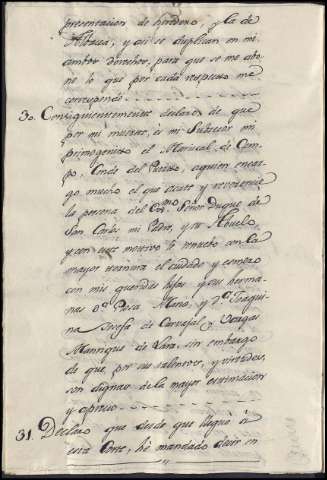 presentacion de heredero, y la de
Albacea, y asi se duplican en mi
ambos derechos, para que se me abo-
ne lo que por cada respecto me
corresponde.
30. Consiguientemente declaro de que
por mi muerte, es mi Subcesor mi
primogenito el Mariscal de Cam-
po, Conde del Puerto, a quien encar-
go mucho el que cuide y reverencie
la persona del Exmo. Señor Duque de
San Carlos mi Padre, y su Abuelo,
y con este motivo le renuebo con la
mayor ternura el cuidado y esmero
con mis queridas hijas y sus herma-
nas Da. Rosa Maria, y Da. Joaqui-
na Josefa de Carvajal y Vargas
Manrique de Lara, sin embargo
de que, por sus talentos, y virtudes,
son dignas de la mayor estimacion
y aprecio.
31. Declaro que desde que llegué á
esta Corte, hé mandado decir en